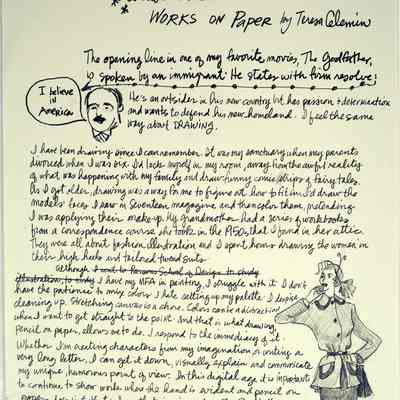 WORKS ON PAPER by Teresa Celemin
The opening line in one of my favorite movies, The Godfather,
is spoken by an immigrant. He states with firm resolve:
I believe in America!
He's an outsider in his new country but has passion + determination
and wants to defend his new homeland. I feel the same
way about DRAWING.
I have been drawing since I can remember. It was my sanctuary when my parents
divorced when I was six. I'd lock myself in my room, away from the awful reality
of what was happening with my family and draw funny comic strips + fairy tales.
As I got older, drawing was a way for me to figure out how to fit in. I'd draw the
models' faces I saw in Seventeen magazine and then color them, pretending
I was applying their make-up. My grandmother had a series of workbooks
from a correspondence course she took in the 1950s that I found in her attic.
They were all about fashion illustration and I spent hours drawing the women in
their high heels and tailored tweed suits.
Although I went to Parsons School of Design to study
illustration, to study I have my MFA in painting, I struggle with it. I don't
have the patience to mix colors. I hate setting up my palette. I despise
cleaning up. Stretching canvas is a chore. Colors can be a distraction
when I want to get straight to the point. And that is what drawing,
pencil on paper, allows me to do. I respond to the immediacy of it.
Whether I'm creating characters from my imagination or writing a
very long letter, I can get it down, visually explain and communicate
my unique, humorous point of view. In this digital age it is important
to continue to show works where the hand is evident and pencil on